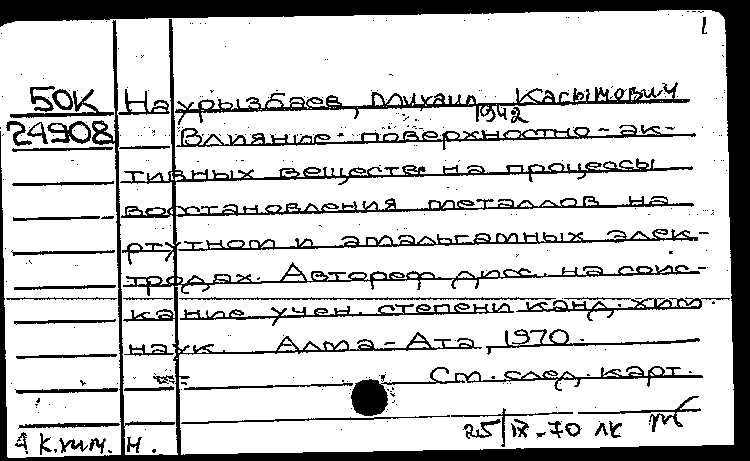 1
50К Наурызбаев, Михаил Касымович
1942
24908 Влияние поверхностно-ак-
тивных веществ на процессы
восстановления металлов на
ртутном и амальгамных элек-
тродах. Автореф. дисс. на соис-
кание учен. степени канд. хим.
наук. Алма-Ата, 1970.
См. след. карт.
25/IX-70 лк
4 К.хим. н.